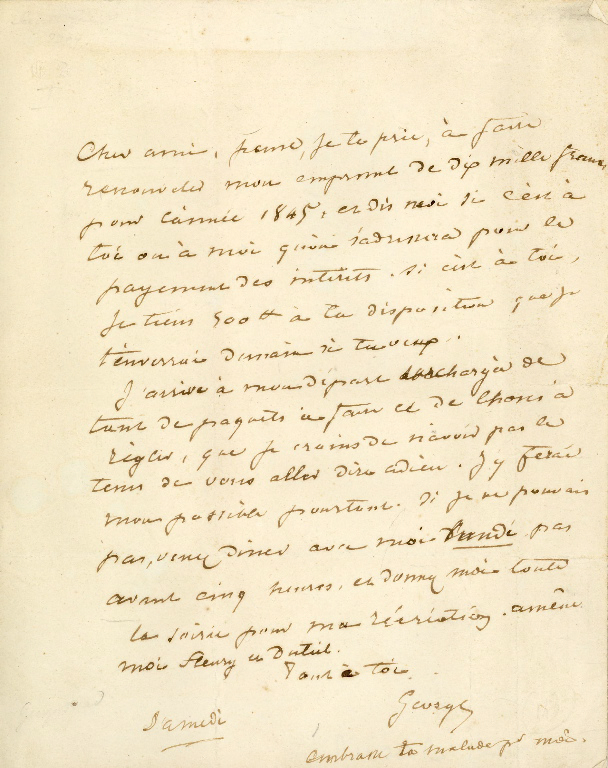 Cher ami, pense, je te prie, à faire
renouveler mon emprunt de dix mille francs
pour l'année 1845, et dis moi si c'est à
toi ou à moi qu'on s'adressera pour le
payement des intérêts. si c'est à toi,
je tiens 500 # à ta disposition que je
t'enverrai demain si tu veux.
J'arrive à mon départ surchargée de
tant de paquets à faire et de choses à
régler, que je crains de n'avoir pas le
tems de vous aller dire adieu. J'y ferai
mon possible pourtant. Si je ne pouvais
pas, venez dîner avec moi lundi pas
avant cinq heures, et donnez moi toute
la soirée pour ma récréation. amène
moi Fleury et Duteil.
Tout à toi.
George
Samedi
embrasse ta malade pr moi.